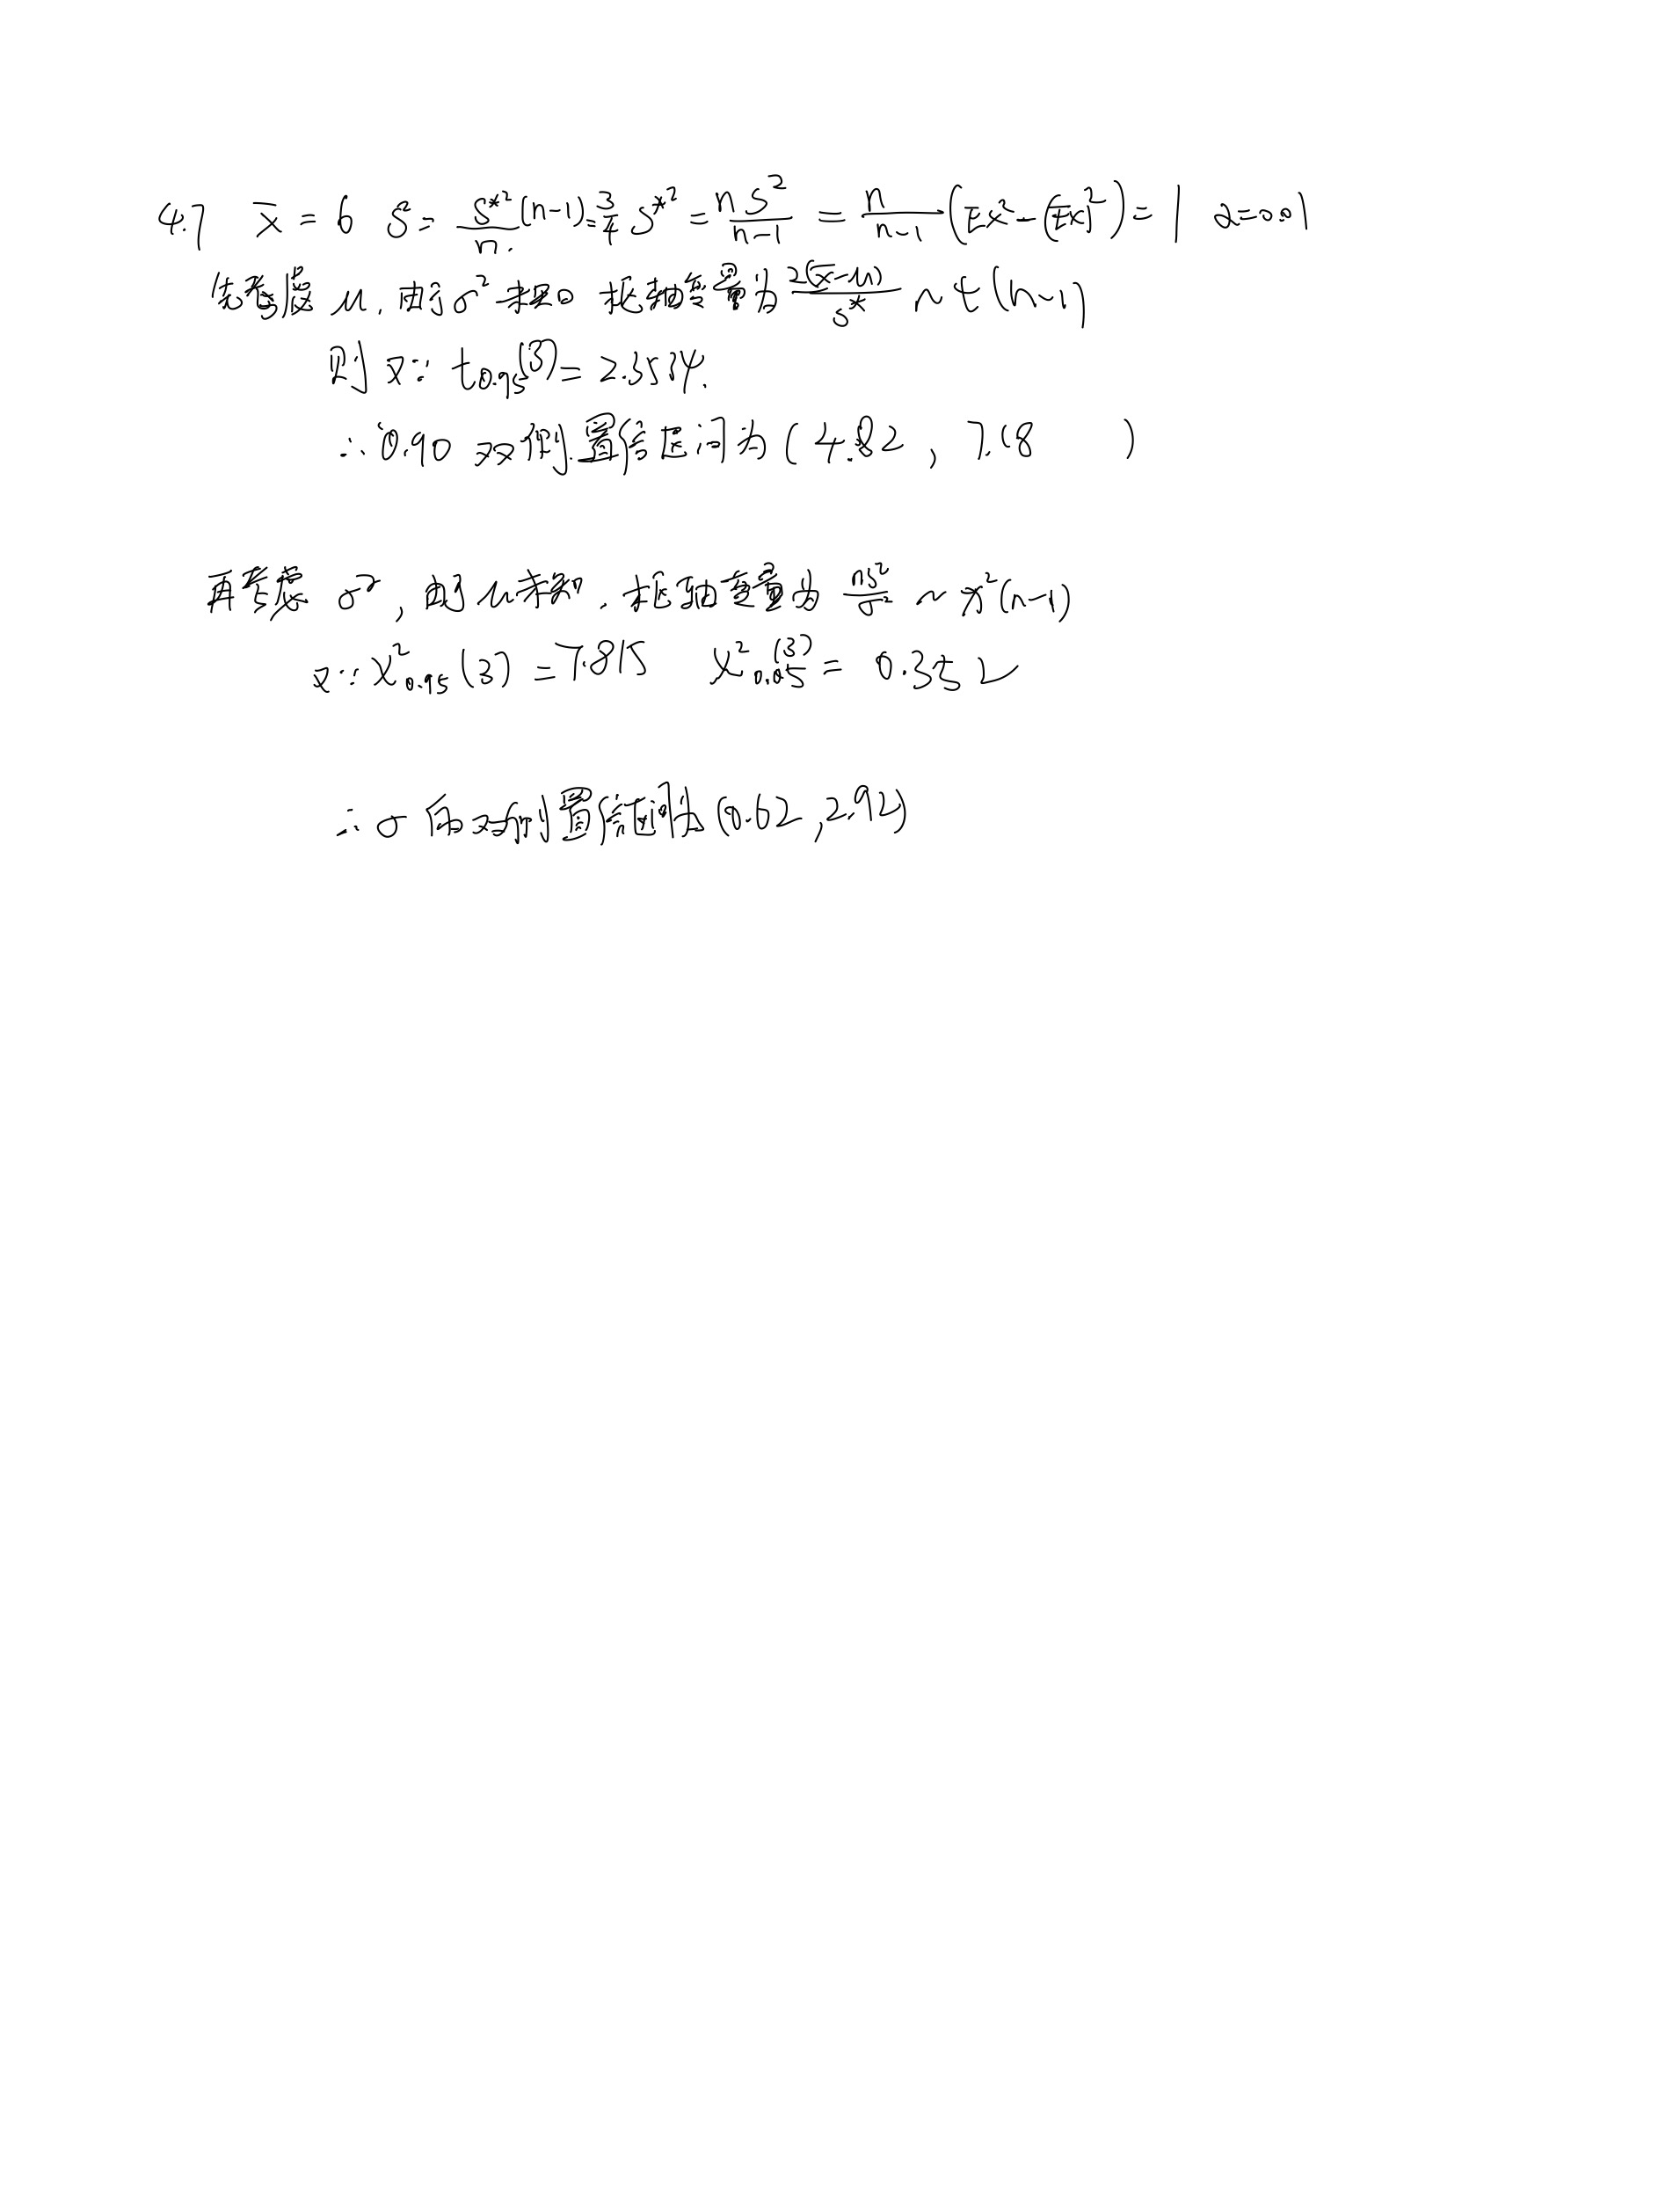 4.7 x̄ = 6 S² = S*²/n. (n-1) = 3/4 S*² = nS²/(n-1) = n/(n-1) (Ex² - (Ex)²) = 1 α=0.01
先考虑 μ, 由于 σ² 未知 枢轴变量为 2(x̄-μ)/S* ~ t(n-1)
则 又∵ t0.95(3) = 2.3534.
∴ 0.90 双侧置信区间为 (4.82, 7.18)
再考虑 σ², 由于 μ 未知. 枢轴变量为 nS²/σ² ~ χ²(n-1)
又∵ χ²0.95(3) = 7.815 χ²0.05(3) = 0.352
∴ σ 的双侧置信区间为 (0.62, 2.92)